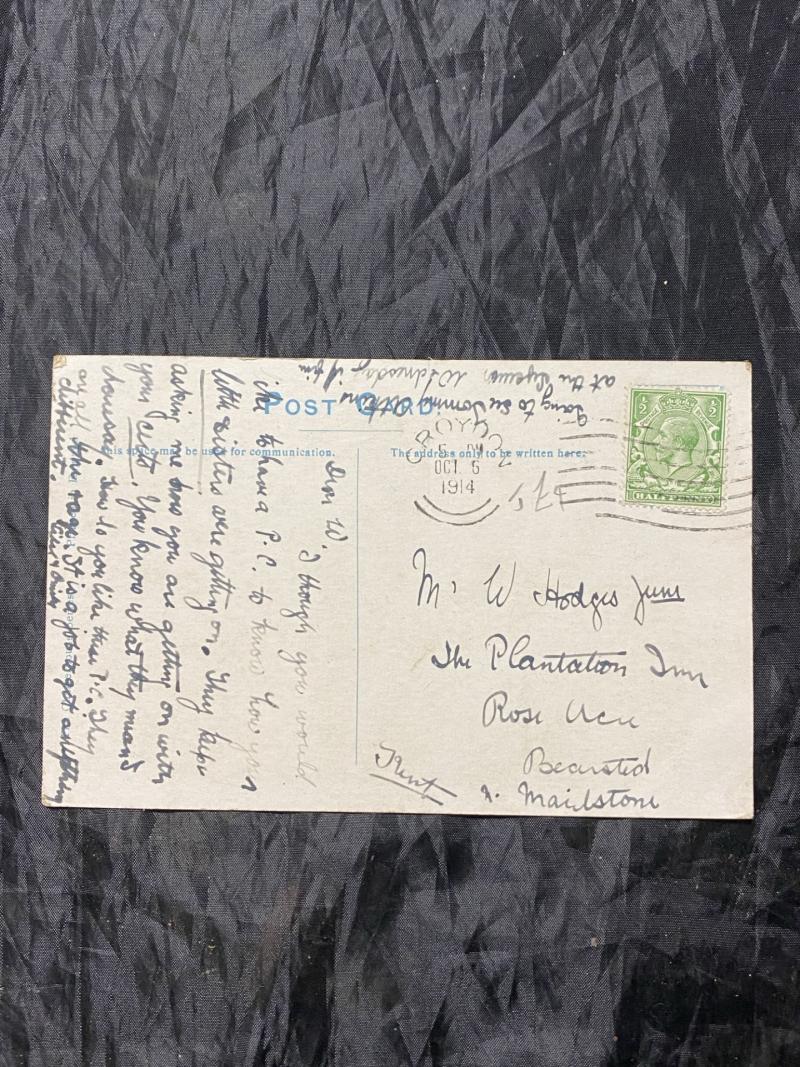 POST CARD
This space may be used for communication.
The address only to be written here.
CROYDON
OCT 5
1914
½ ½
HALFPENNY
Mr W Hodges Junr
The Plantation Inn
Rose Acre
Bearsted
Nr Maidstone
Kent
Dear W.
I though you would
like to have a P.C. to know how your
little sisters are getting on. They kept
asking me how you are getting on with
your
You know what they mean
How do you like this P.C. They
are all the rage. It is a job to get anything
different.
Going to see
at the Wednesday if fine